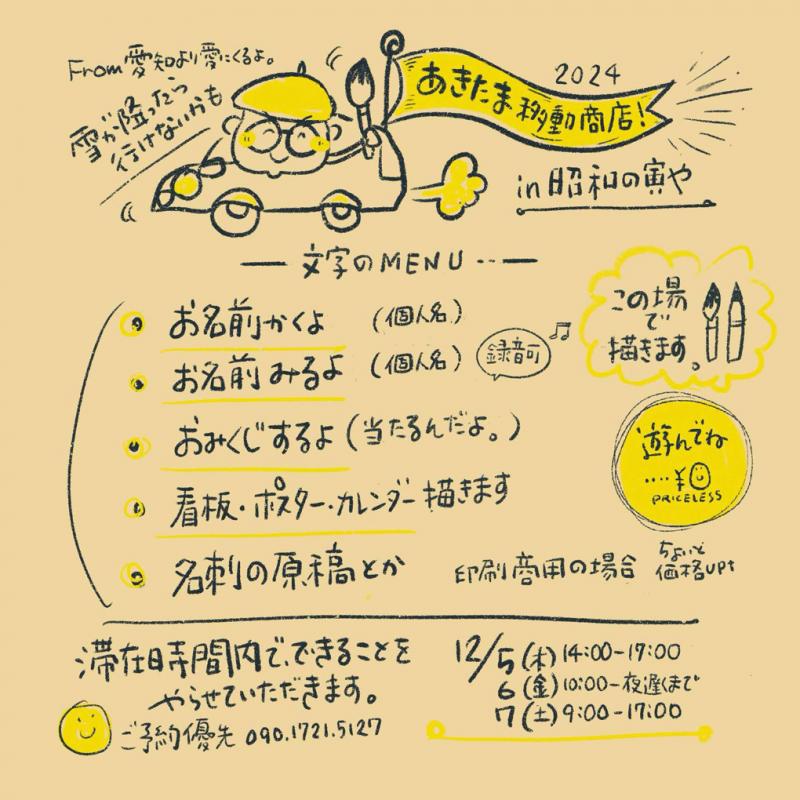 From 愛知より愛にくるよ。
雪が降ったら
行けないかも
2024
あきたま移動商店!
in 昭和の寅や
文字のMENU
お名前かくよ (個人名)
お名前みるよ (個人名) 録音可
おみくじするよ (当たるんだよ。)
看板・ポスター・カレンダー描きます
名刺の原稿とか
この場
で
描きます。
遊んでね
....¥0
PRICELESS
印刷商用の場合 ちょいと
価格up↑
滞在時間内で、できることを
やらせていただきます。
ご予約優先 090.1721.5127
12/5(木) 14:00-17:00
6(金) 10:00-夜遅くまで
7(土) 9:00-17:00